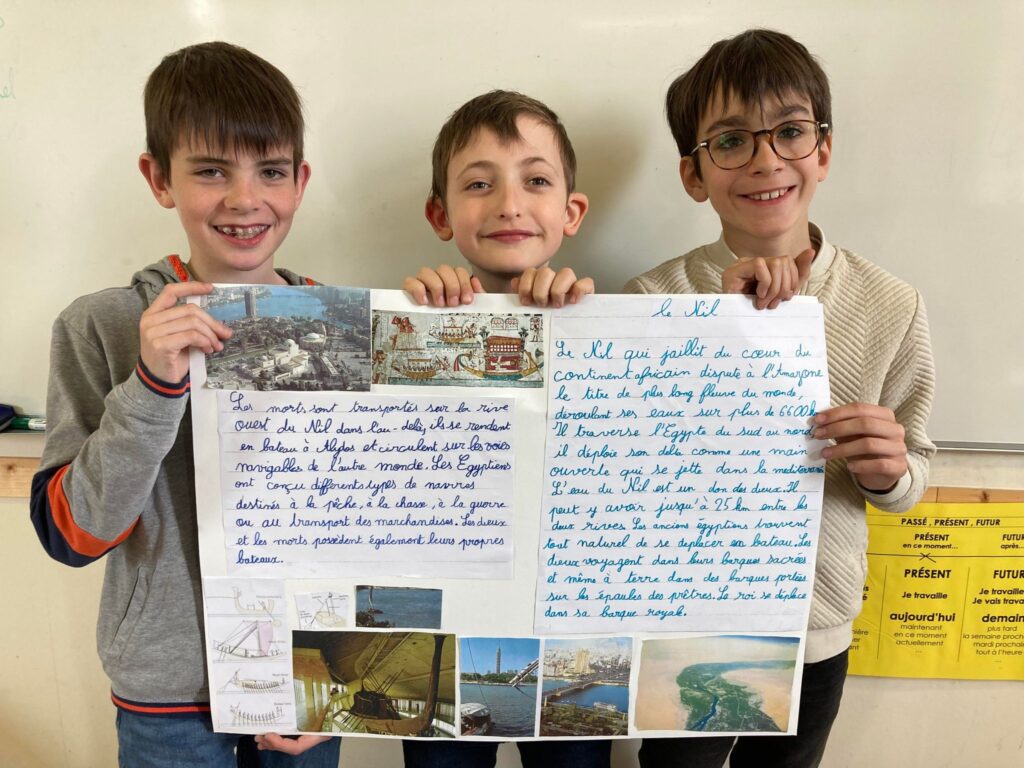 le Nil
Le Nil qui jaillit du cœur du
continent africain dispute à l'Amazone
le titre de plus long fleuve du monde,
déroulant ses eaux sur plus de 6600 k
Il traverse l'Egypte du sud au nord
il déploie son delta comme une main
ouverte qui se jette dans la mediterranée
L'eau du Nil est un don des dieux. Il
peut y avoir jusqu'à 25 km entre les
deux rives. Les anciens égyptiens trouvent
tout naturel de se déplacer en bateau. Les
dieux voyagent dans leurs barques sacrées
et même à terre dans des barques portées
sur les épaules des prêtres. Le roi se déplace
dans sa barque royale.
Les morts sont transportés sur la rive
ouest du Nil dans l'au-delà, ils se rendent
en bateau à Abydos et circulent sur les voies
navigables de l'autre monde. Les Egyptiens
ont conçu différents types de navires
destinés à la pêche, à la chasse, à la guerre
ou au transport des marchandises. Les dieux
et les morts possèdent également leurs propres
bateaux.
PASSÉ, PRÉSENT, FUTUR
PRÉSENT
en ce moment...
PRÉSENT
Je travaille
aujourd'hui
maintenant
en ce moment
actuellement
FUTUR
après...
FUTUR
Je travaille
Je vais travai
demain
plus tard
la semaine procha
mardi prochain
tout à l'heure